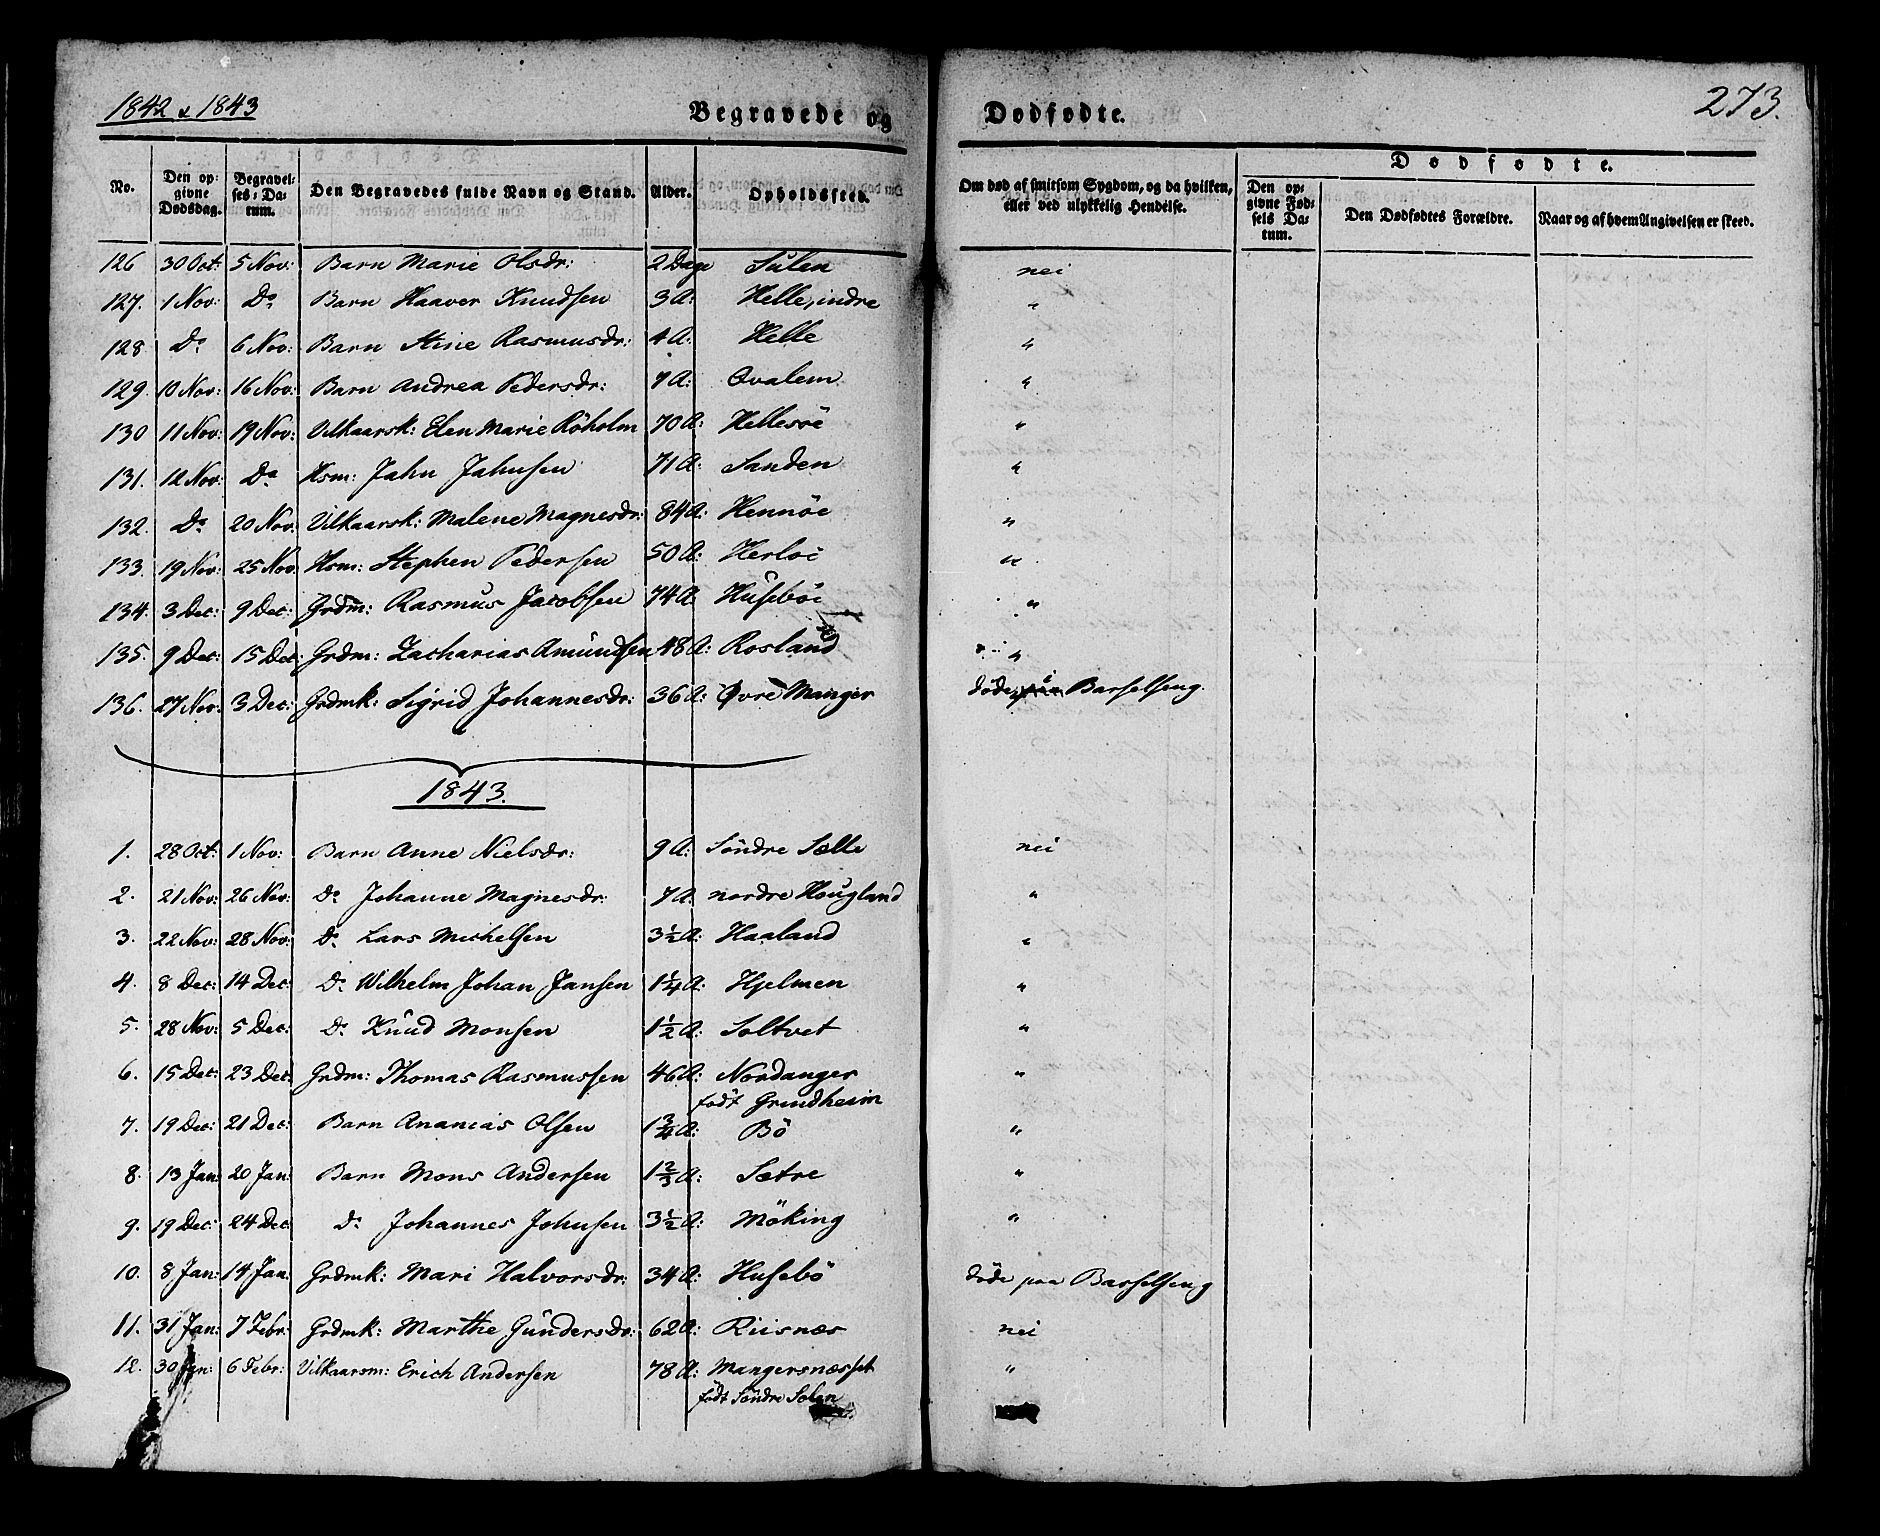 1842 & 1843
Begravede og
Dødfødte.
273.
No.
Den opgivne Dødsdag.
Begravelses-Datum.
Den Begravedes fulde Navn og Stand.
Alder.
Opholdssted.
Om død af smitsom Sygdom, og da hvilken, eller ved ulykkelig Hendelse.
Dødfødte.
Den opgivne Fødsels Datum.
Den Dødfødtes Forældre.
Naar og af hvem Angivelsen er skeed.
126 30 Oct: 5 Nov: Barn Marie Olsdr: 2 Dage Sulen nei
127. 1 Nov: Do Barn Haaver Knudsen 3 A: Helle, indre "
128 Do 6 Nov: Barn Stine Rasmusdr: 4 A: Helle "
129. 10 Nov: 16 Nov: Barn Andrea Pedersdr: 7 A: Qvalem "
130 11 Nov: 19 Nov: Vilkaarsk: Elen Marie Röholm 70 A: Hellesöe "
131. 12 Nov: Do Hsm: Jahn Jahnsen 71 A: Sanden "
132. Do 20 Nov: Vilkaarsk: Malene Magnesdr: 84 A: Hennöe "
133. 19 Nov: 25 Nov Hsm: Stephen Pedersen 50 A: Herloe "
134. 3 Dec: 9 Dec: Grdm: Rasmus Jacobsen 74 A: Huseböe "
135. 9 Dec: 15 Dec: Grdm: Zacharias Amundsen 48 A: Rosland "
136. 27 Nov: 3 Dec: Grdmk: Sigrid Johannesdr: 36 A: Øvre Manger döde paa Barselseng.
1843.
1. 28 Oct: 1 Nov: Barn Anne Nielsdr: 9 A: Söndre Sælle nei
2. 21 Nov: 26 Nov: Do Johanne Magnesdr: 7 A: nordre Hougland "
3. 22 Nov: 28 Nov: Do Lars Michelsen 3½ A: Haaland "
4. 8 Dec: 14 Dec: Do Wilhelm Johan Jansen 1¼ A: Hjelmen "
5. 28 Nov: 5 Dec: Do Knud Monsen 1½ A: Soltvet "
6. 15 Dec: 23 Dec: Grdm: Thomas Rasmussen 46 A: Nordanger "
födt Grindheim
7. 19 Dec: 21 Dec: Barn Ananias Olsen 1¾ A: Bö "
8. 13 Jan: 20 Jan: Barn Mons Andersen 1⅔ A: Sætre "
9. 19 Dec: 24 Dec: Do Johannes Johnsen 3½ A: Möking "
10. 8 Jan: 14 Jan: Grdmk: Mari Halvorsdr: 34 A: Husebö döde paa Barselseng
11. 31 Jan: 7 Febr: Grdmk: Marthe Gundersdr: 62 A: Riisnæs nei
12. 30 Jan: 6 Febr: Vilkaarsm: Erich Andersen 78 A: Mangersnæsset "
födt Söndre Solen